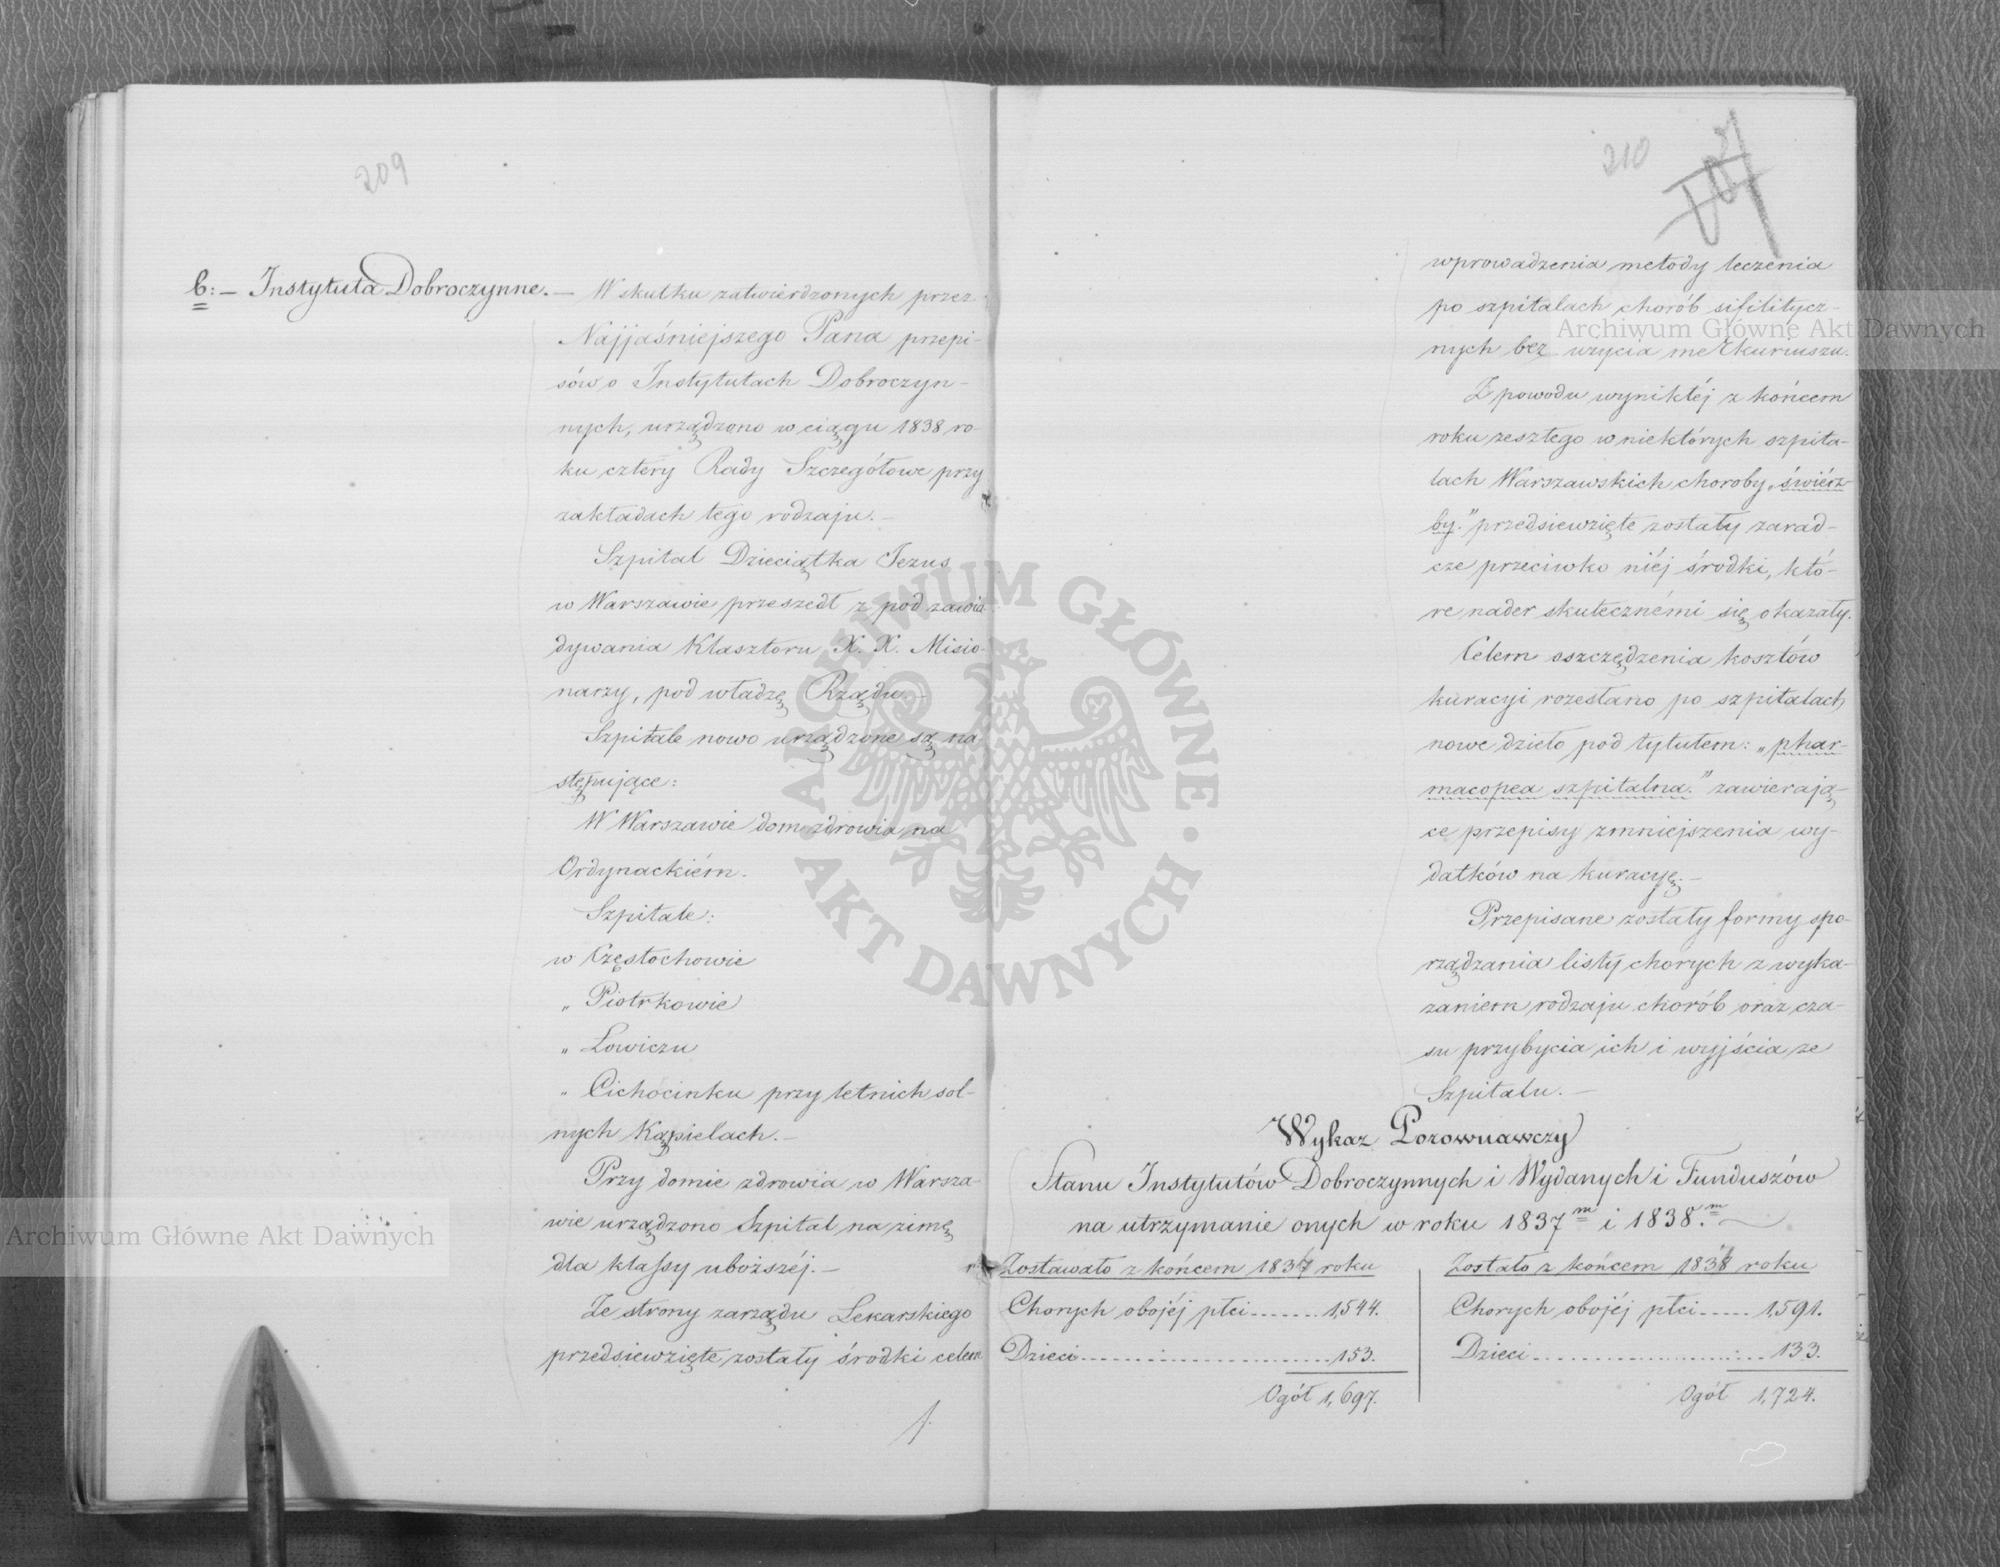 209
b: — Instytuta Dobroczynne. — W skutku zatwierdzonych przez
Najjaśniejszego Pana przepi-
sów o Instytutach Dobroczyn-
nych, urządzono w ciągu 1838 ro-
ku cztery Rady Szczegółowe przy
zakładach tego rodzaju. —
Szpital Dzieciątka Jezus
w Warszawie przeszedł z pod zawia
dywania Klasztoru X. X. Misio-
narzy, pod władzę Rządu. —
Szpitale nowo urządzone są na
stępujące:
W Warszawie dom zdrowia na
Ordynackiém.
Szpitale:
w Częstochowie
„ Piotrkowie
„ Łowiczu
„ Cichocinku przy letnich sol-
nych Kąpielach. —
Przy domie zdrowia w Warsza-
wie urządzono Szpital na zimę
dla klassy uboższéj. —
Ze strony zarządu Lekarskiego
przedsiewzięte zostały środki celem
210
wprowadzenia metody leczenia
po szpitalach chorób sifilitycz-
nych bez użycia merkuriuszu.
Z powodu wynikłéj z końcem
roku zeszłego w niektórych szpita-
lach Warszawskich choroby „świérz-
by." przedsiewzięte zostały zarad-
cze przeciwko niéj środki, któ-
re nader skutecznémi się okazały.
Celem oszczędzenia kosztów
kuracyi rozesłano po szpitalach
nowe dzieło pod tytułem: „phar-
macopea szpitalna." zawierają-
ce przepisy zmniejszenia wy-
datków na kuracyę. —
Przepisane zostały formy spo-
rządzania listy chorych z wyka-
zaniem rodzaju chorób oraz cza-
su przybycia ich i wyjścia ze
Szpitalu. —
Wykaz Porownawczy
Stanu Instytutów Dobroczynnych i Wydanych i Funduszów
na utrzymanie onych w roku 1837m i 1838.m
Zostawało z końcem 1837 roku
Chorych obojéj płci ........ 1,544.
Dzieci ........ 153.
Ogół 1,697.
Zostało z końcem 1838 roku
Chorych obojéj płci ..... 1,591.
Dzieci ........ 133.
Ogół 1,724.
Archiwum Główne Akt Dawnych
Archiwum Główne Akt Dawnych
ARCHIWUM GŁÓWNE · AKT DAWNYCH ·